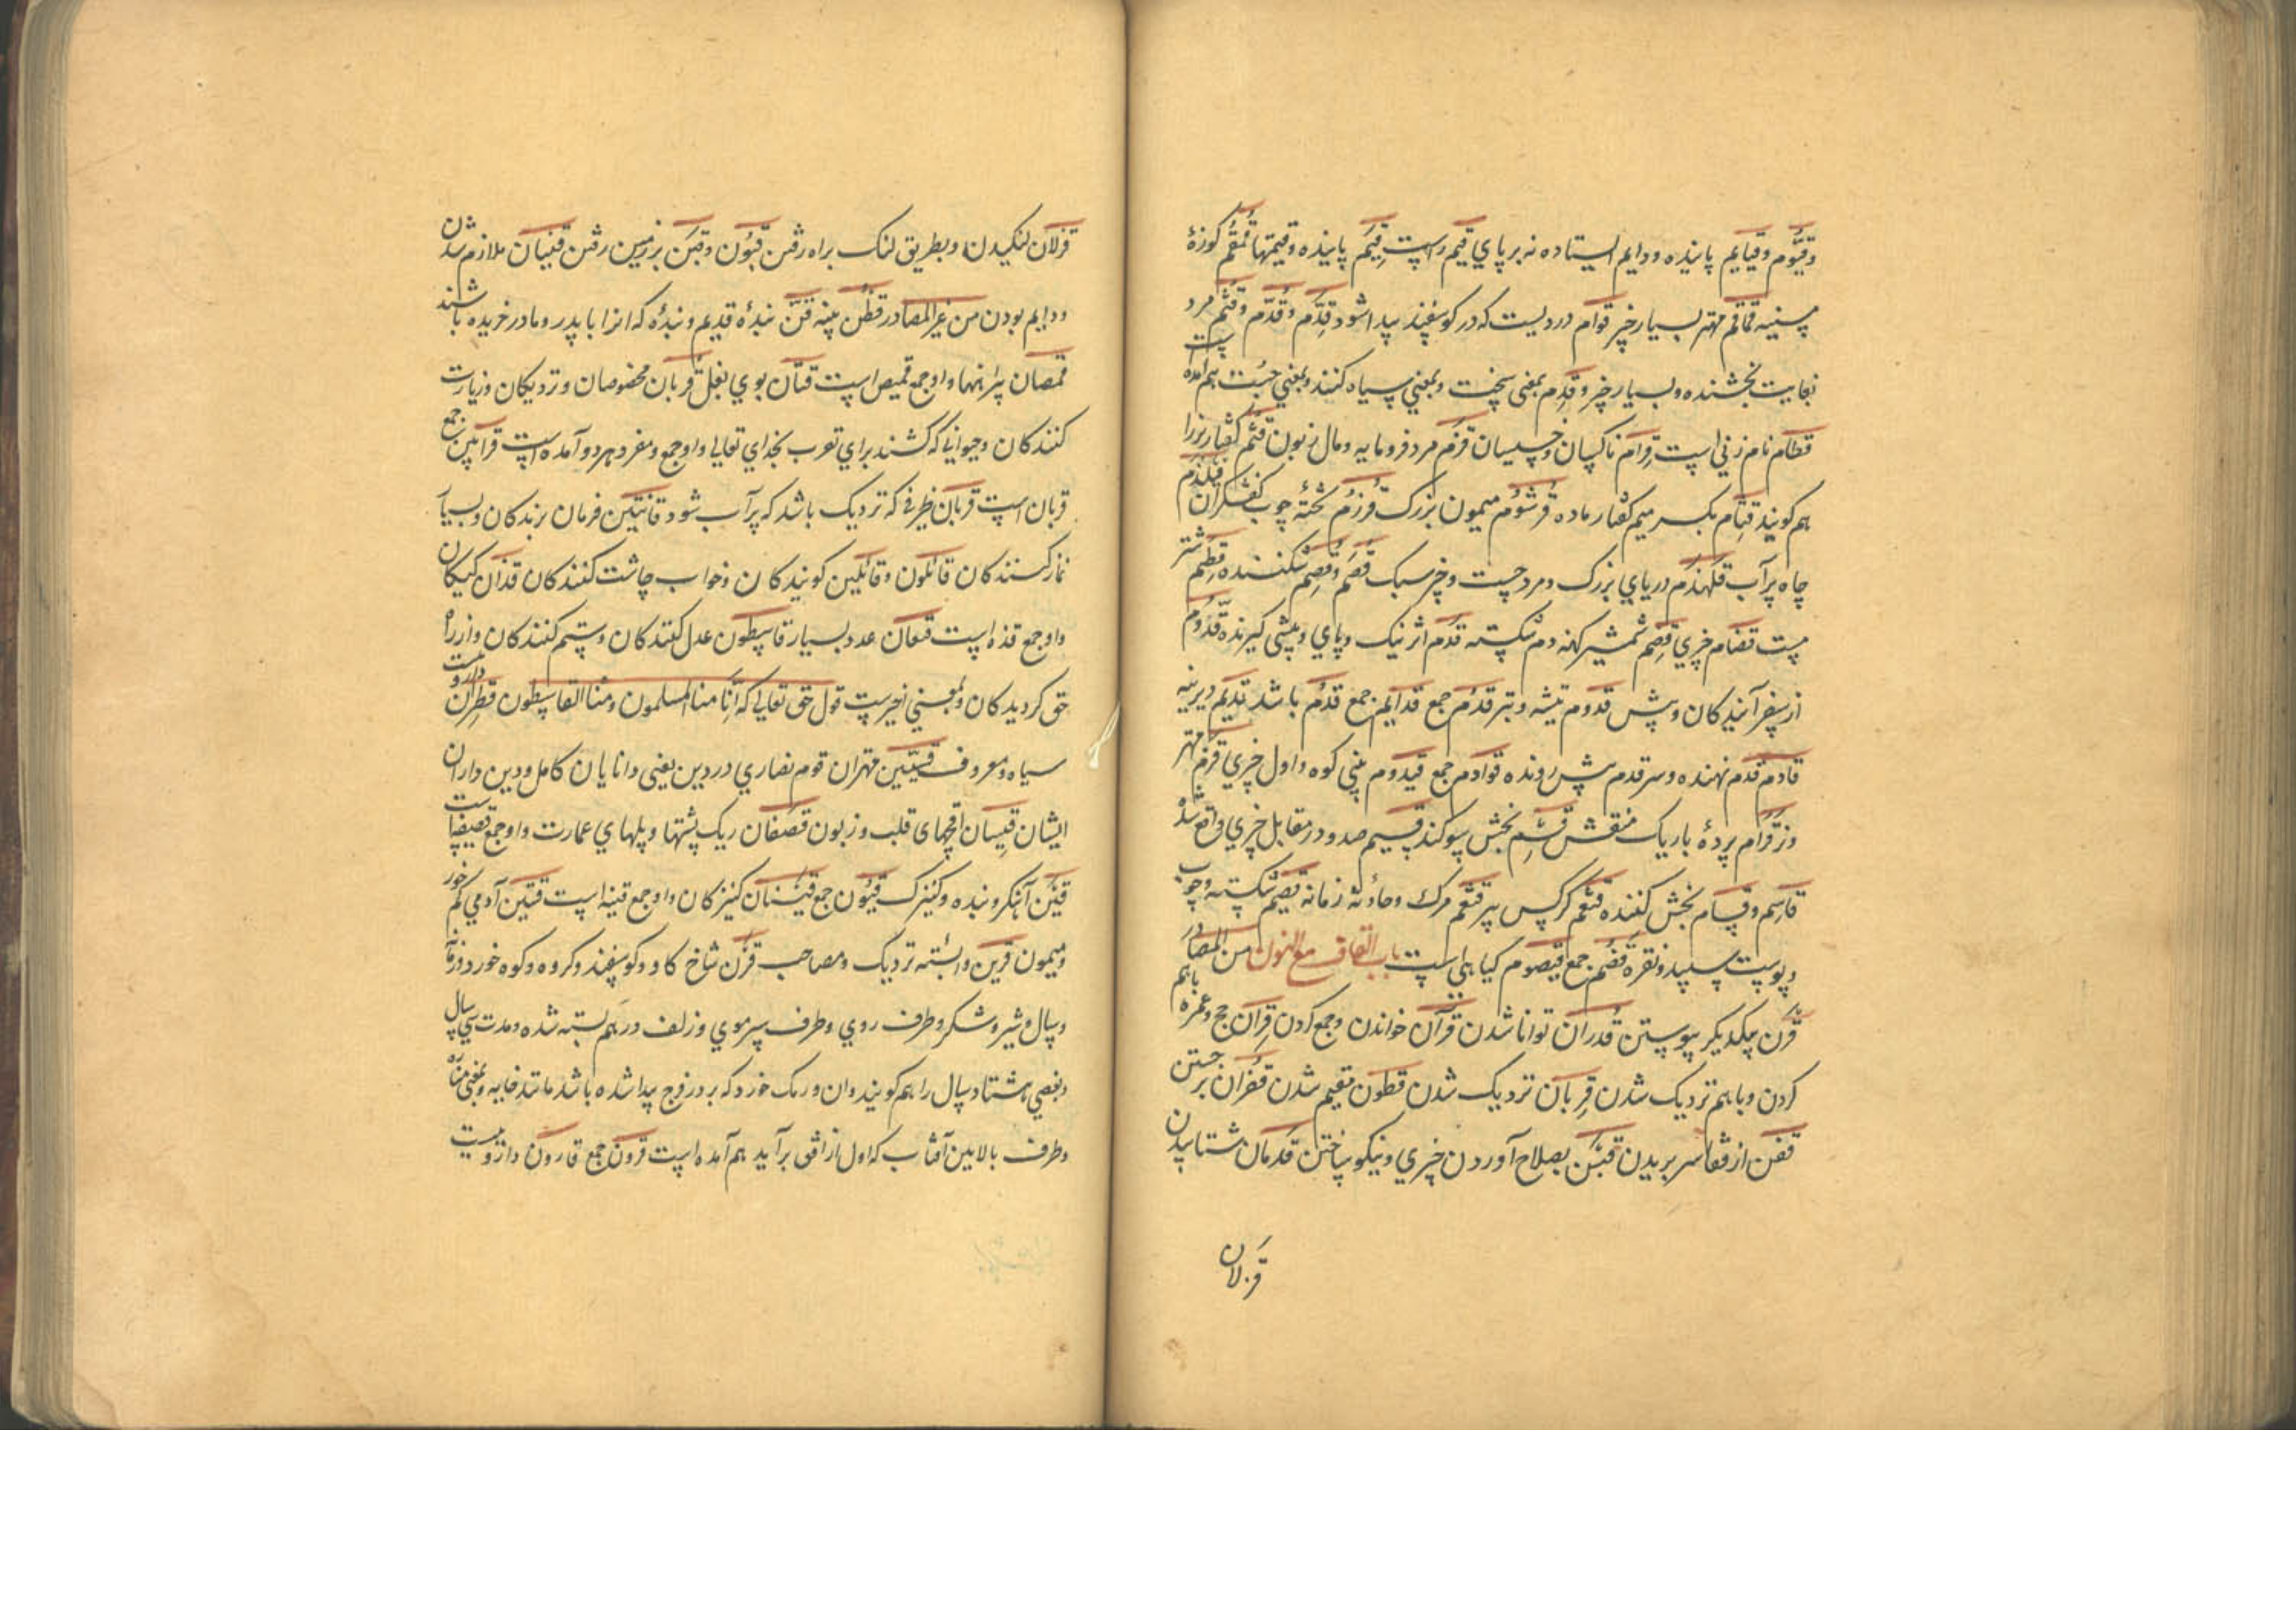 وقیّوم وقیایم پاینده ودایم ایستاده نه بر پای قیم راست قیّم پاینده وقیمتها قمقم کوزهٔ
مسینه قماقم مهتر بسیار خیر قوام دردیست که در کوسفند پیدا شود قدّم وقدّم وقثم مرد
بغایت بخشنده وبسیار خیر وقدم بمعنی سخت وبمعنی سیاه کنند وبمعنی هم آمده است
قطام نام زنی است قزام ناکسان وخسیسان قزم مرد فرومایه ومال زبون قثم کفتار نر را
هم کویند قثام بکسر میم کفتار ماده قرشوم میمون بزرک قرزم تختهٔ چوب کفشکران قلیذم
چاه پر آب قلهذم دریای بزرک ومرد چست وخر سبک قصم وقصم شکننده قطم شتر
مست قضام چیزی قضم شمشیر کهنه دم شکسته قدم اثر نیک وپای وپیشی کیرنده قدوم
از سفر آیندکان وپیش قدوم تیشه وتبر قدم جمع قدایم جمع قدم باشد قدیم دیرینه
قادم قدم نهنده وسر قدم پیش رونده قوادم جمع قیدوم بینی کوه واول چیزی قرم مهتر
ونر قرام پردهٔ باریک منقش قسم بخش سوکند قسیم صد ودر مقابل چیزی واقع شده
قاسم وقسام بخش کننده قشعم کرکس پیر قشعم مرک وحادثه زمانه قصیم شکسته وچوب
وپوست سپید ونقره قضم جمع قیصوم کیاهی است باب القاف مع النون من المصادر
قرن بیکدیکر پیوستن قدران توانا شدن قرآن خواندن وجمع کردن قران حج وعمره باهم
کردن وباهم نزدیک شدن قربان نزدیک شدن قطون مقیم شدن قفزان برجستن
قفن از قفا سر بریدن قین بصلاح آوردن چیزی ونیکو ساختن قدمان شتابیدن
قزلان
قزلان لنکیدن وبطریق لنک براه رفتن قبون وقبن بر زمین رفتن قنیان ملازم شدن
ودایم بودن من غیر المصادر قطن پنبه قنّ بندهٔ قدیم وبندهٔ که انرا با پدر ومادر خریده باشند
قمصان پیراهنها واو جمع قمیص است قنان بوی بغل قربان مخصوصان ونزدیکان وزیارت
کنندکان وحیوانی که کشند برای تقرب بخدای تعالی واو جمع ومفرد هر دو آمده است قرابین جمع
قربان است قربان ظرفی که نزدیک باشد که پر آب شود قانتین فرمان برندکان وبسیار
نماز کنندکان قائلون وقائلین کویندکان وخواب چاشت کنندکان قذان کیکان
واو جمع قذه است قنعان عدد بسیار قاسطون عدل کنندکان وستم کنندکان واز راه
حق کردیدکان وبمعنی اخیرست قول حق تعالی که انّا منا المسلمون ومنّا القاسطون قطران داروییست
سیاه ومعروف قسیسین مهتران قوم نصاری در دین یعنی دانایان کامل ودین داران
ایشان قسیان اقچهای قلب وزبون قصفان ریک پشتها وپلهای عمارت واو جمع قصیفاست
قین آهنکر وبنده وکنیزک قیون جمع قینان کنیزکان واو جمع قینه است قتین آدمی کم خور
ومیمون قرین وابسته نزدیک ومصاحب قرن شاخ کاو وکوسفند وکروه وکوه خورد وزمان
وسال وشیر وشکر وطرف روی وطرف سر موی وزلف درهم بسته شده ومدت سی سال
وبعضی هشتاد سال را هم کویند وان ورمک خورد که بر در فرج پیدا شده باشد مانند خایه وبمعنی مناره
وطرف بالایین آفتاب که اول از افق برآید هم آمده است قرون جمع قارون داروییست